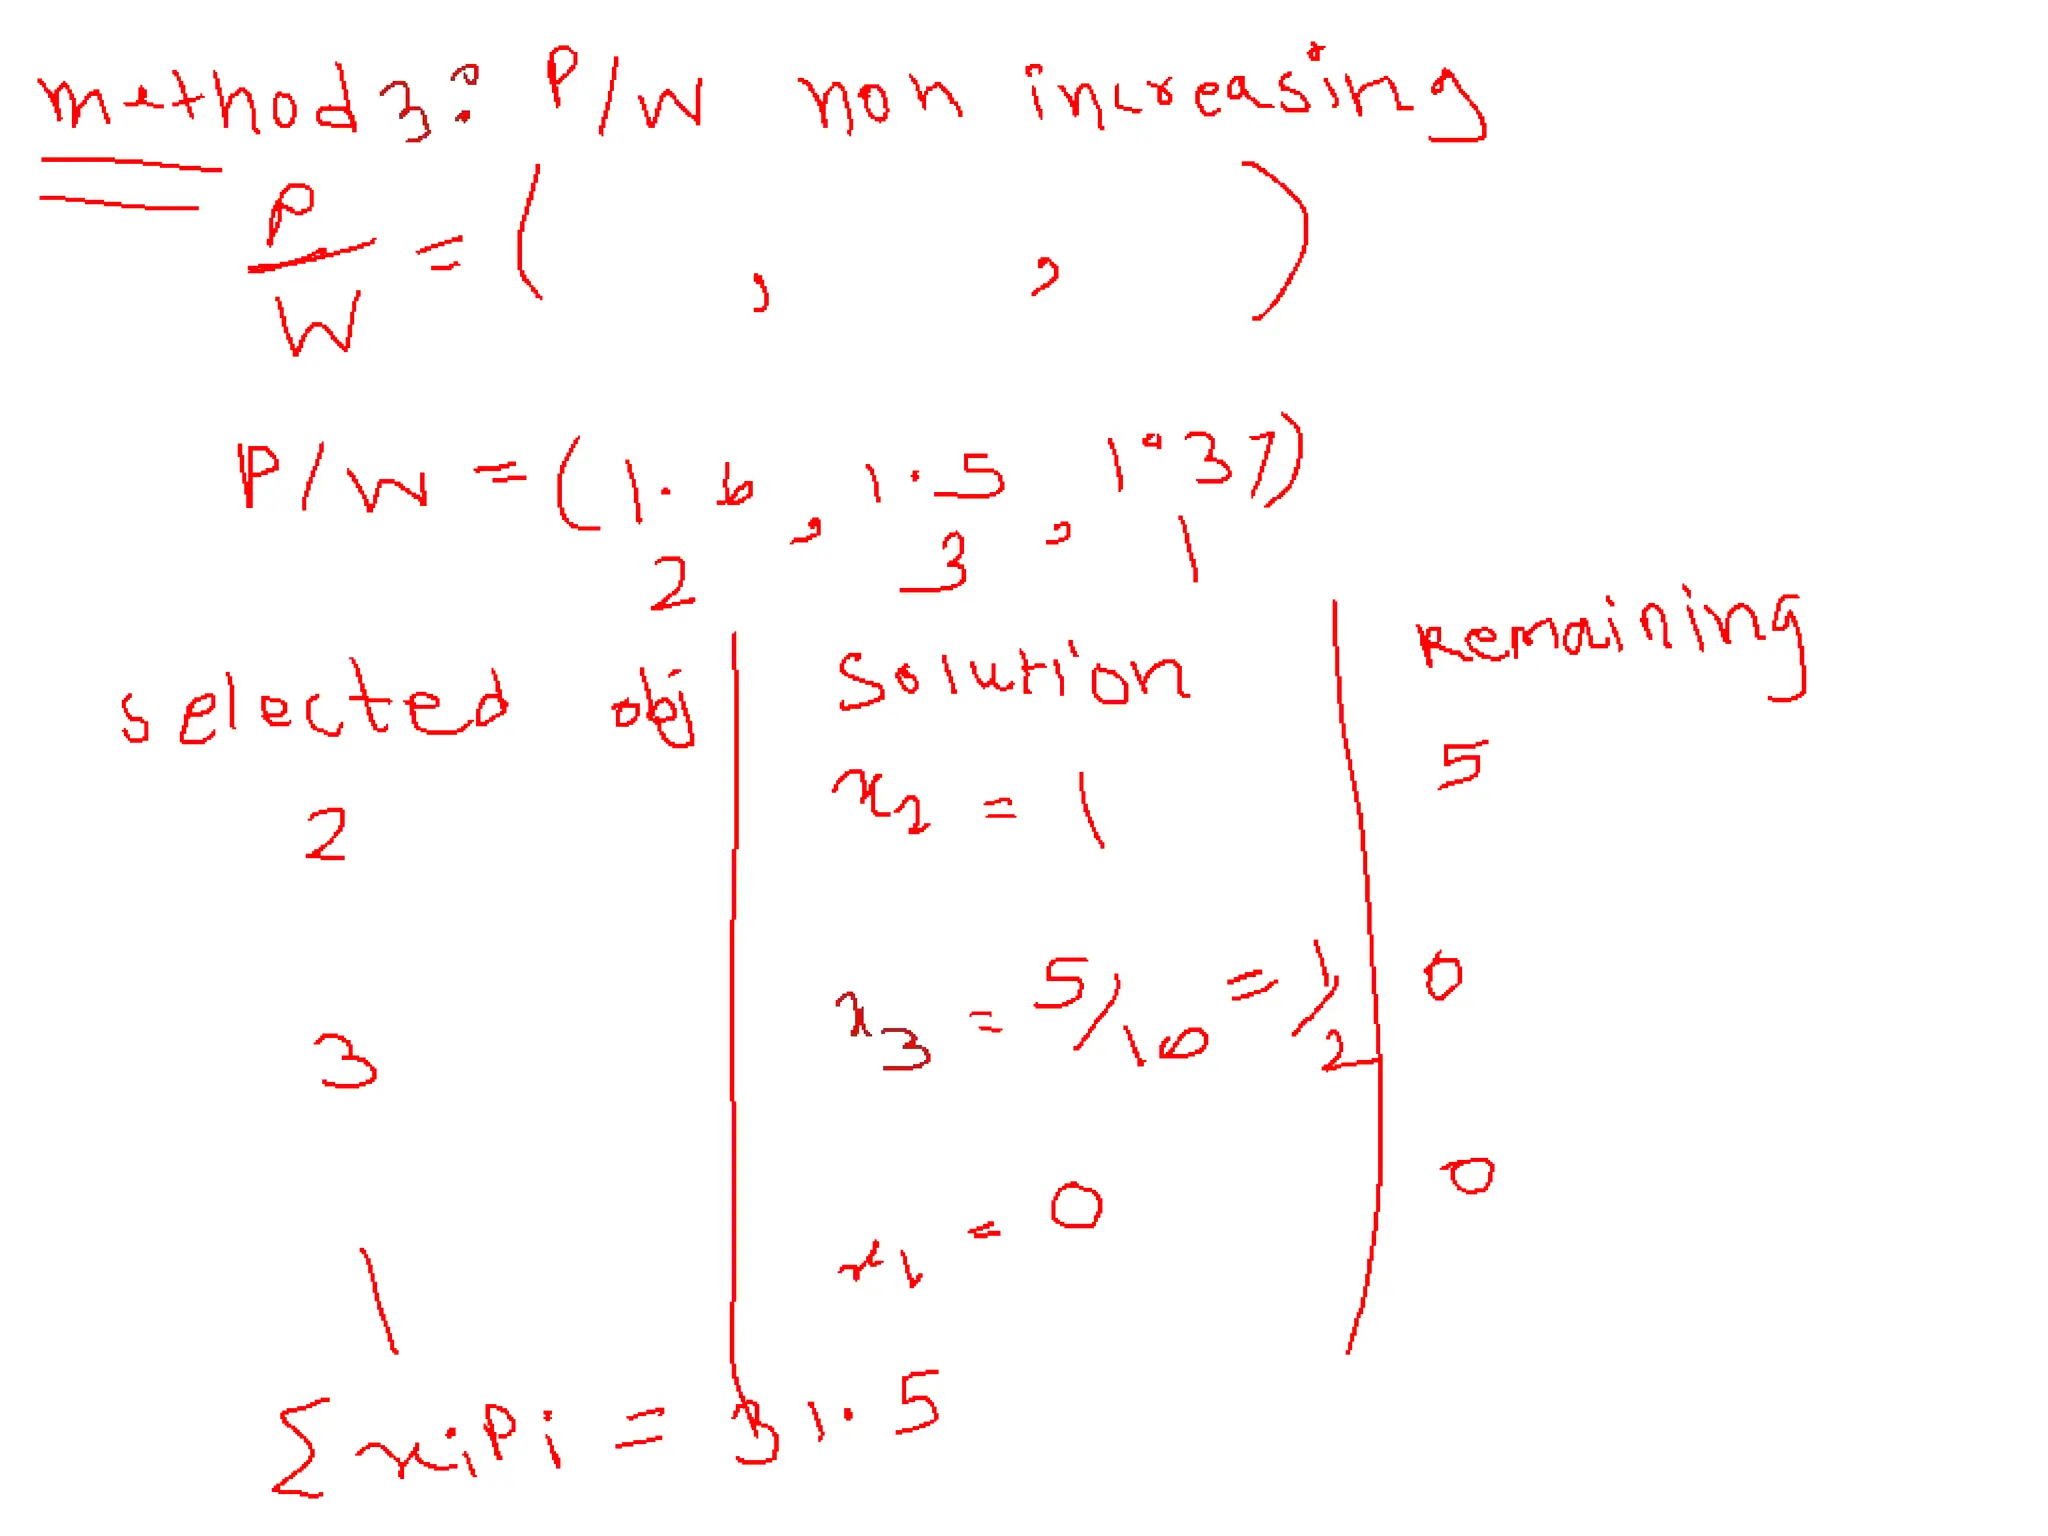 method 3: P/W non increasing
P/W = ( , , )
P/W = (1.6, 1.5, 1.37)
2 3 1
selected obj | solution | Remaining
2 | x2 = 1 | 5
3 | x3 = 5/10 = 1/2 | 0
1 | x1 = 0 | 0
Σxipi = 31.5